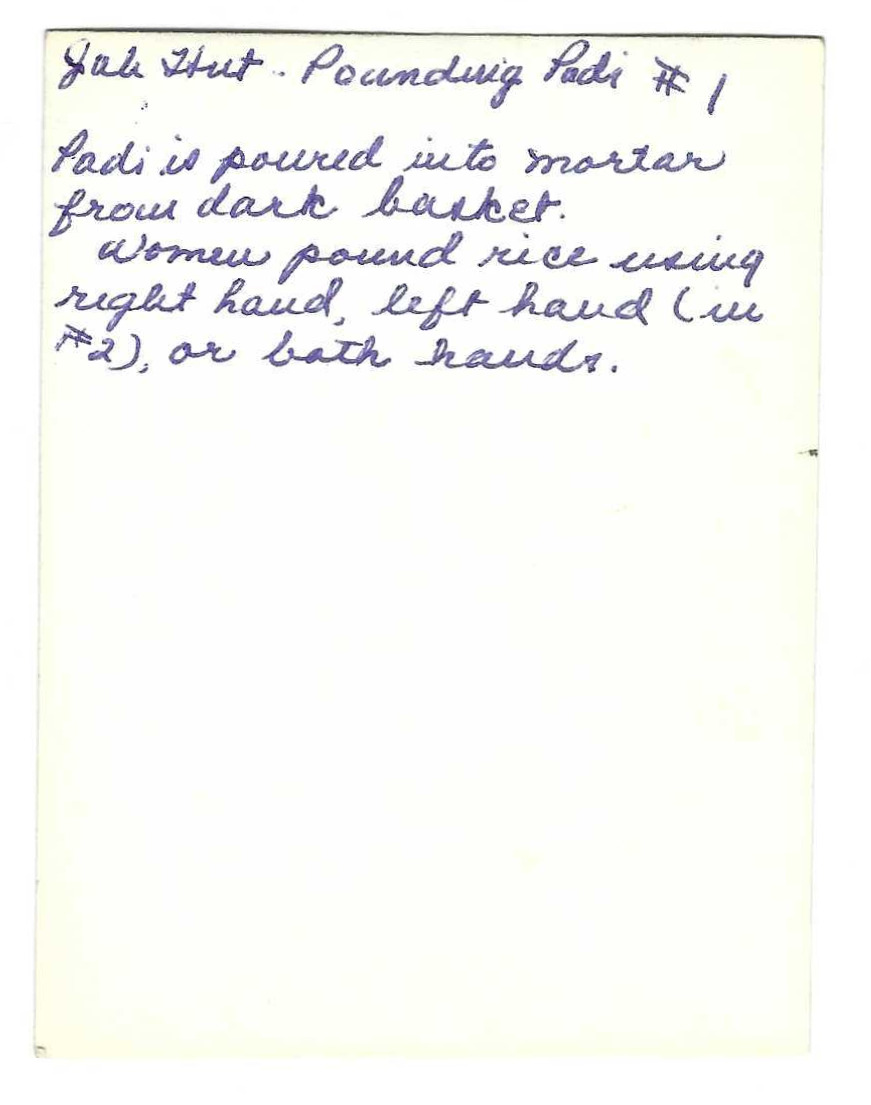 Jah Hut - Pounding Padi # 1
Padi is poured into mortar
from dark basket.
Women pound rice using
right hand, left hand (in
#2), or both hands.